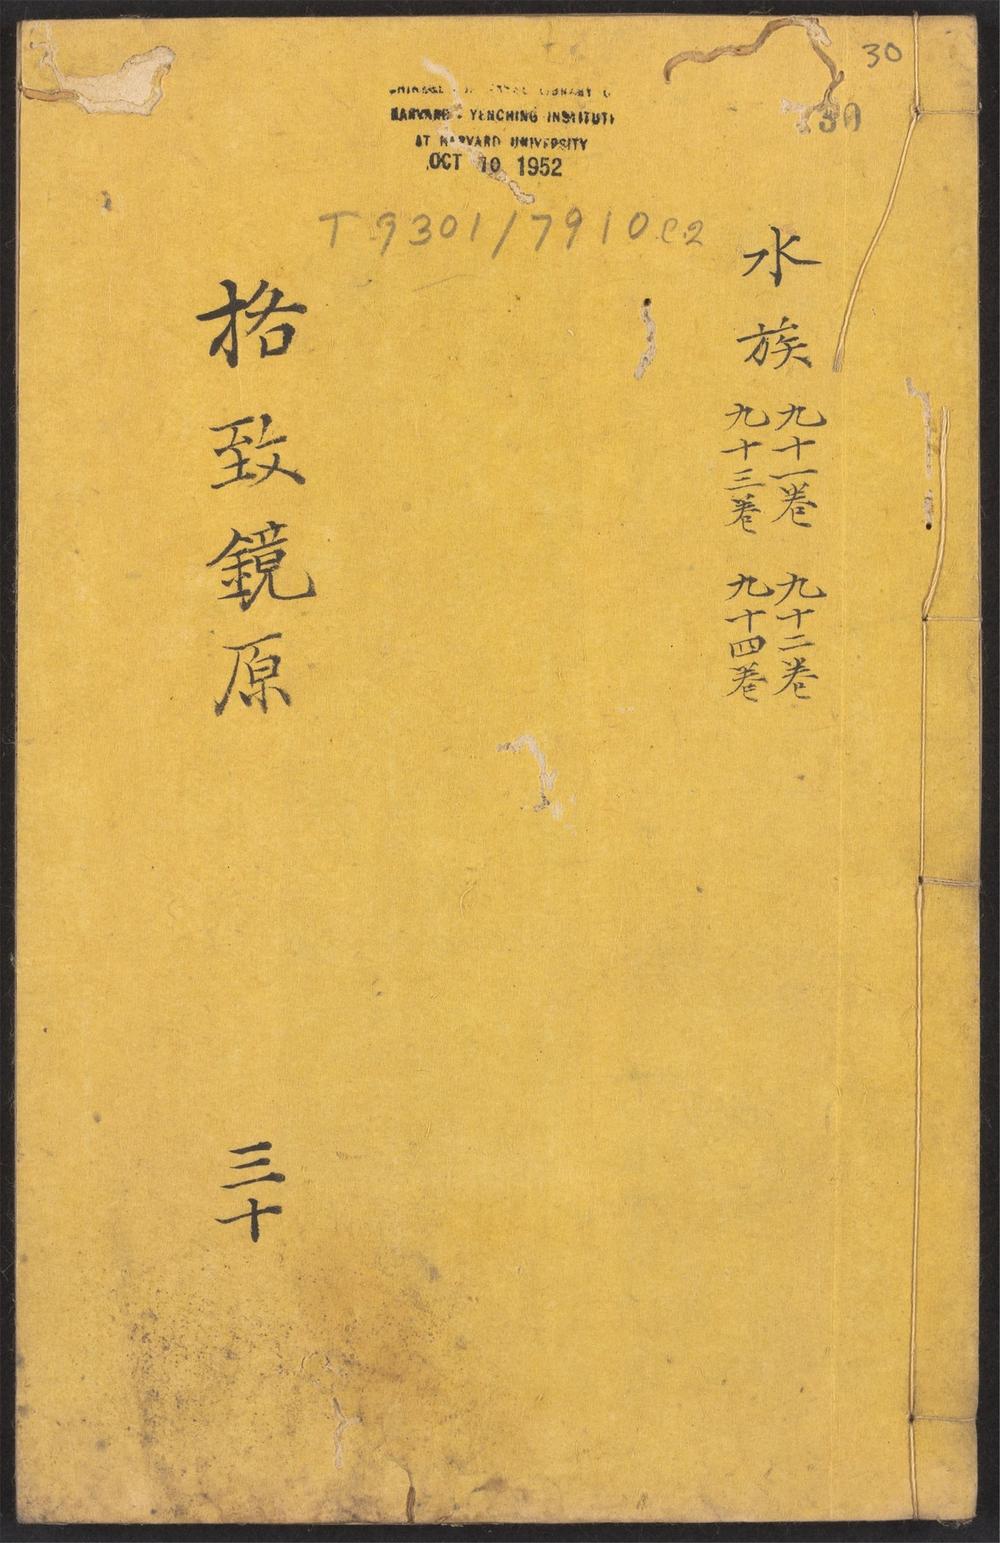 30
30
HARVARD-YENCHING INSTITUTE
AT HARVARD UNIVERSITY
OCT 10 1952
T 9301/7910 C.2
水族
九十一卷 九十二卷
九十三卷 九十四卷
格致鏡原
三十